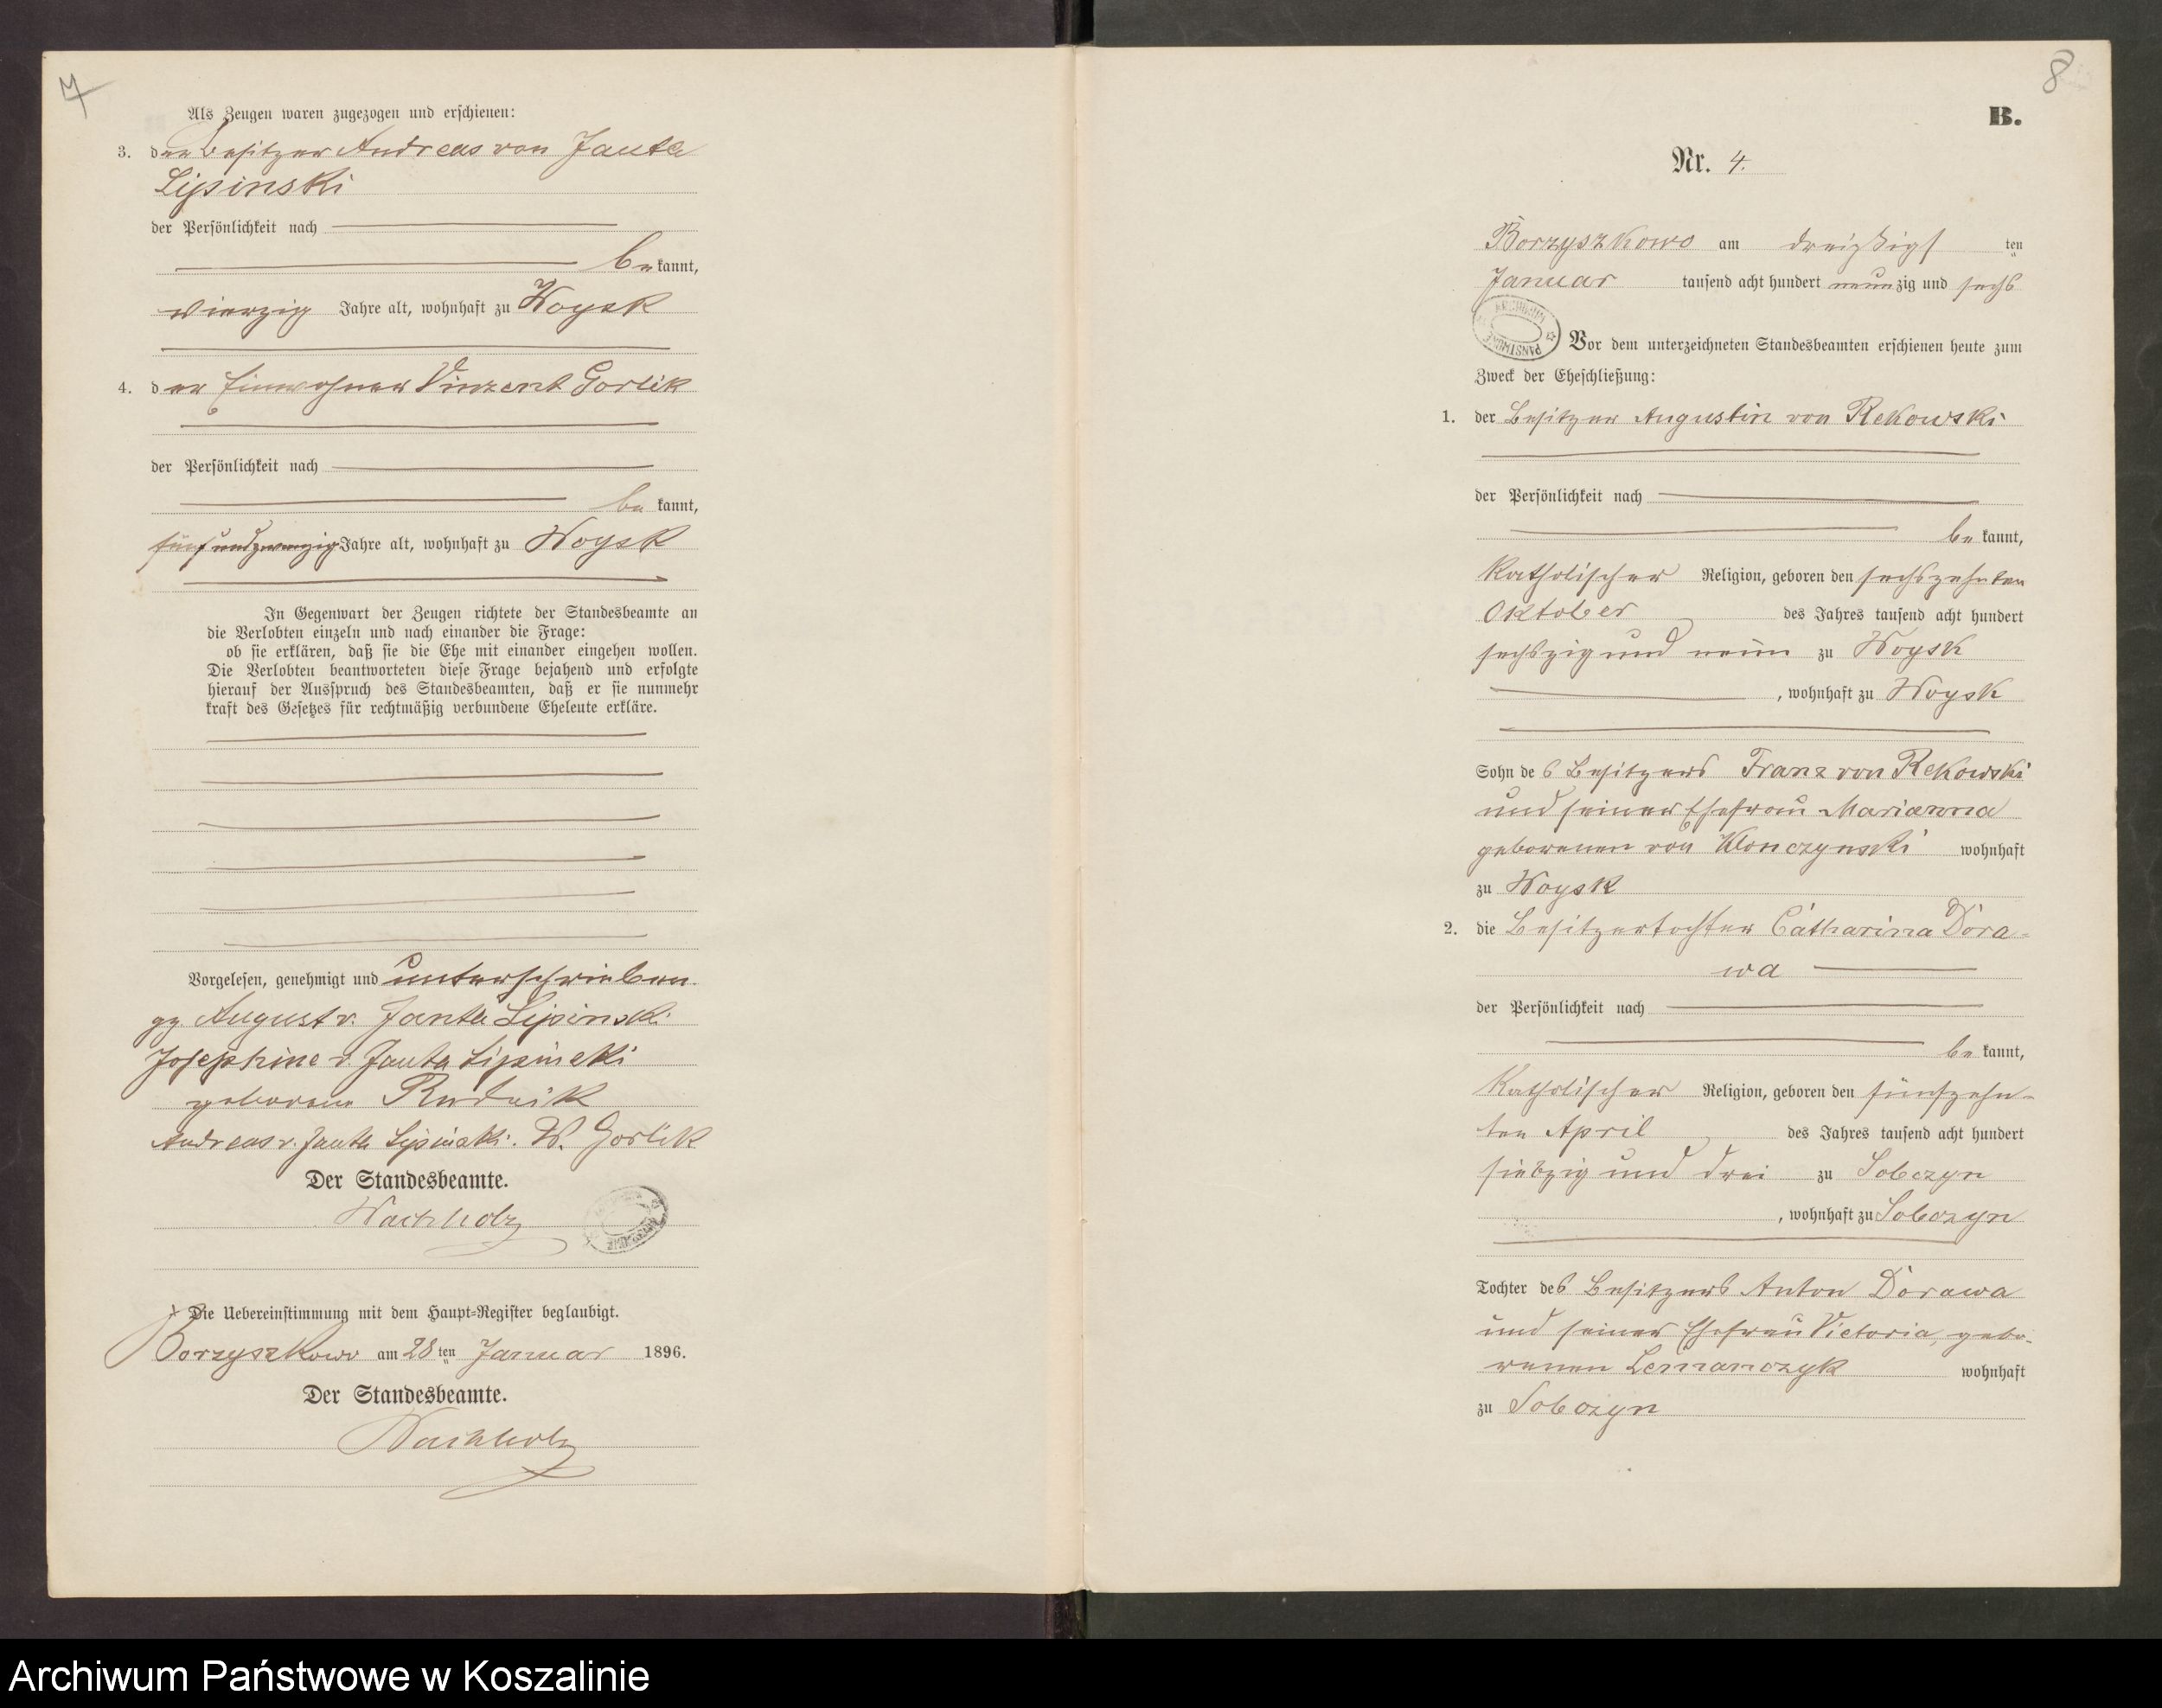 7
Als Zeugen waren zugezogen und erschienen:
3. der Besitzer Andreas von Janta
Lipinski
der Persönlichkeit nach
bekannt,
vierzig Jahre alt, wohnhaft zu Woysk
4. der Einwohner Vinzent Gorlik
der Persönlichkeit nach
bekannt,
fünfundzwanzig Jahre alt, wohnhaft zu Woysk
In Gegenwart der Zeugen richtete der Standesbeamte an
die Verlobten einzeln und nach einander die Frage:
ob sie erklären, daß sie die Ehe mit einander eingehen wollen.
Die Verlobten beantworteten diese Frage bejahend und erfolgte
hierauf der Ausspruch des Standesbeamten, daß er sie nunmehr
kraft des Gesetzes für rechtmäßig verbundene Eheleute erkläre.
Vorgelesen, genehmigt und unterschrieben.
gz. August v. Janta Lipinski.
Josephine v. Janta Lipinski
geborene Rudnik
Andreas v. Janta Lipinski. W. Gorlik
Der Standesbeamte.
Wachholz
Die Uebereinstimmung mit dem Haupt-Register beglaubigt.
Borzyszkowo am 28 ten Januar 1896.
Der Standesbeamte.
Wachholz
8
B.
Nr. 4.
Borzyszkowo am dreißigs ten
Januar tausend acht hundert neunzig und sechs
Vor dem unterzeichneten Standesbeamten erschienen heute zum
Zweck der Eheschließung:
1. der Besitzer Augustin von Rekowski
der Persönlichkeit nach
bekannt,
katholischer Religion, geboren den sechszehnten
Oktober des Jahres tausend acht hundert
sechszig und neun zu Woysk
, wohnhaft zu Woysk
Sohn des Besitzers Franz von Rekowski
und seiner Ehefrau Marianna
geborenen von Klonczynski wohnhaft
zu Woysk
2. die Besitzertochter Catharina Dora-
wa
der Persönlichkeit nach
bekannt,
katholischer Religion, geboren den fünfzehn-
ten April des Jahres tausend acht hundert
siebzig und drei zu Sobczyn
, wohnhaft zu Sobczyn
Tochter des Besitzers Anton Dorawa
und seiner Ehefrau Victoria, gebo-
renen Lemanczyk wohnhaft
zu Sobczyn
Archiwum Państwowe w Koszalinie